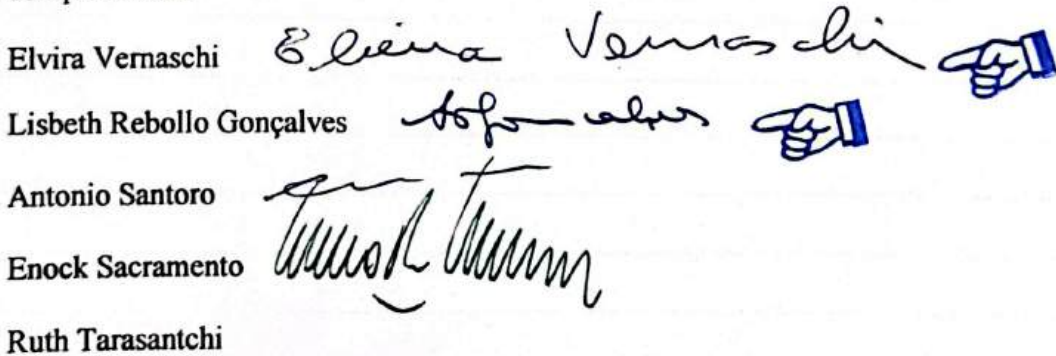 Elvira Vernaschi Elvira Vernaschi
Lisbeth Rebollo Gonçalves
Antonio Santoro
Enock Sacramento
Ruth Tarasantchi